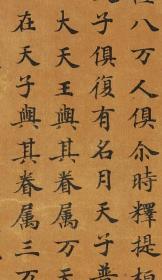 八万人俱尒時釋提桓
子俱復有名月天子普
大天王與其眷属万天
在天子與其眷属三万